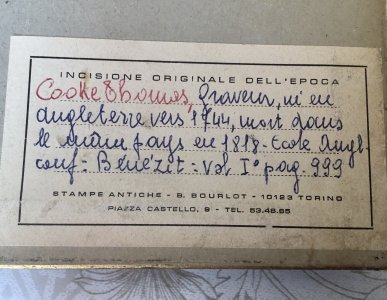 INCISIONE ORIGINALE DELL'EPOCA
Cooke Thomas, Graveur, né en
Angleterre vers 1744, mort dans
le même pays en 1818. Ecole Angl.
conf. Bénézit - vol I° pag. 999
STAMPE ANTICHE - B. BOURLOT - 10123 TORINO
PIAZZA CASTELLO, 9 - TEL. 53.48.65